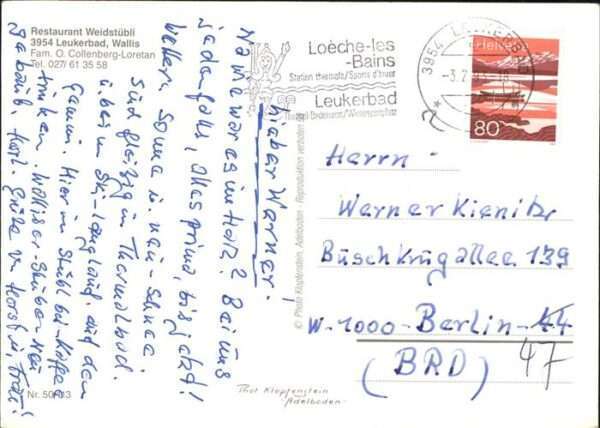 Restaurant Weidstübli
3954 Leukerbad, Wallis
Fam. O. Collenberg-Loretan
Tel. 027/61 35 58
Loèche-les
-Bains
Station thermale/Sports d'hiver
Leukerbad
3954 LEUKERBAD
Helvetia
80
Lieber Werner!
Na, wie war es im Harz? Bei uns
jedenfalls, alles prima, bis jetzt!
Wetter, Sonne u. neu-Schnee.
Sind gleitzig in Thermalbad.
u. beim Ski-langland. auf dem
Gemmi. Hier im Stübl bei Kaffee
trinken. Walliser-Stuben
gebaut. Herzl. Grüße v. Horst u. Trdi!
Herrn
Werner Kienitz
Buschkrugallee 139
W-1000-Berlin-44
47
(BRD)
© Photo Klopfenstein, Adelboden - Reproduktion verboten
Phot Klopfenstein
Adelboden